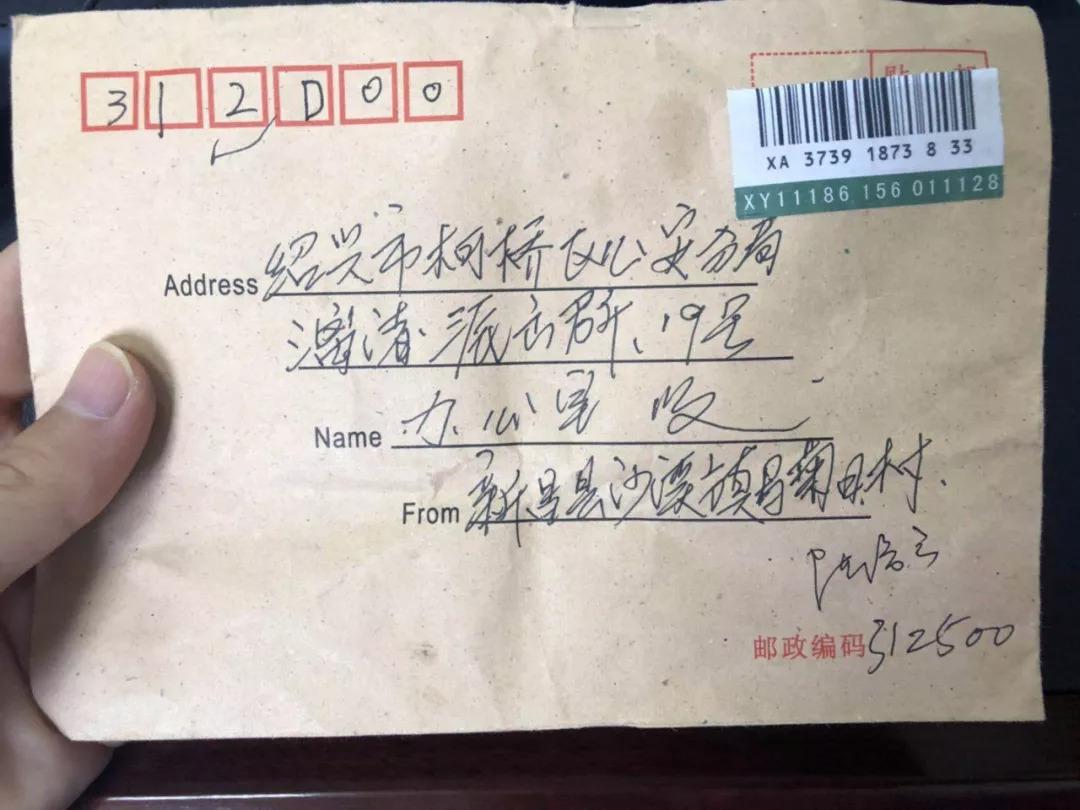 312000
贴
XA 3739 1873 8 33
XY11186 156 011128
Address 绍兴市柯桥区公安分局
漓渚派出所、19号
Name 办公室 收
From 新昌县沙溪镇 村、
邮政编码 312500